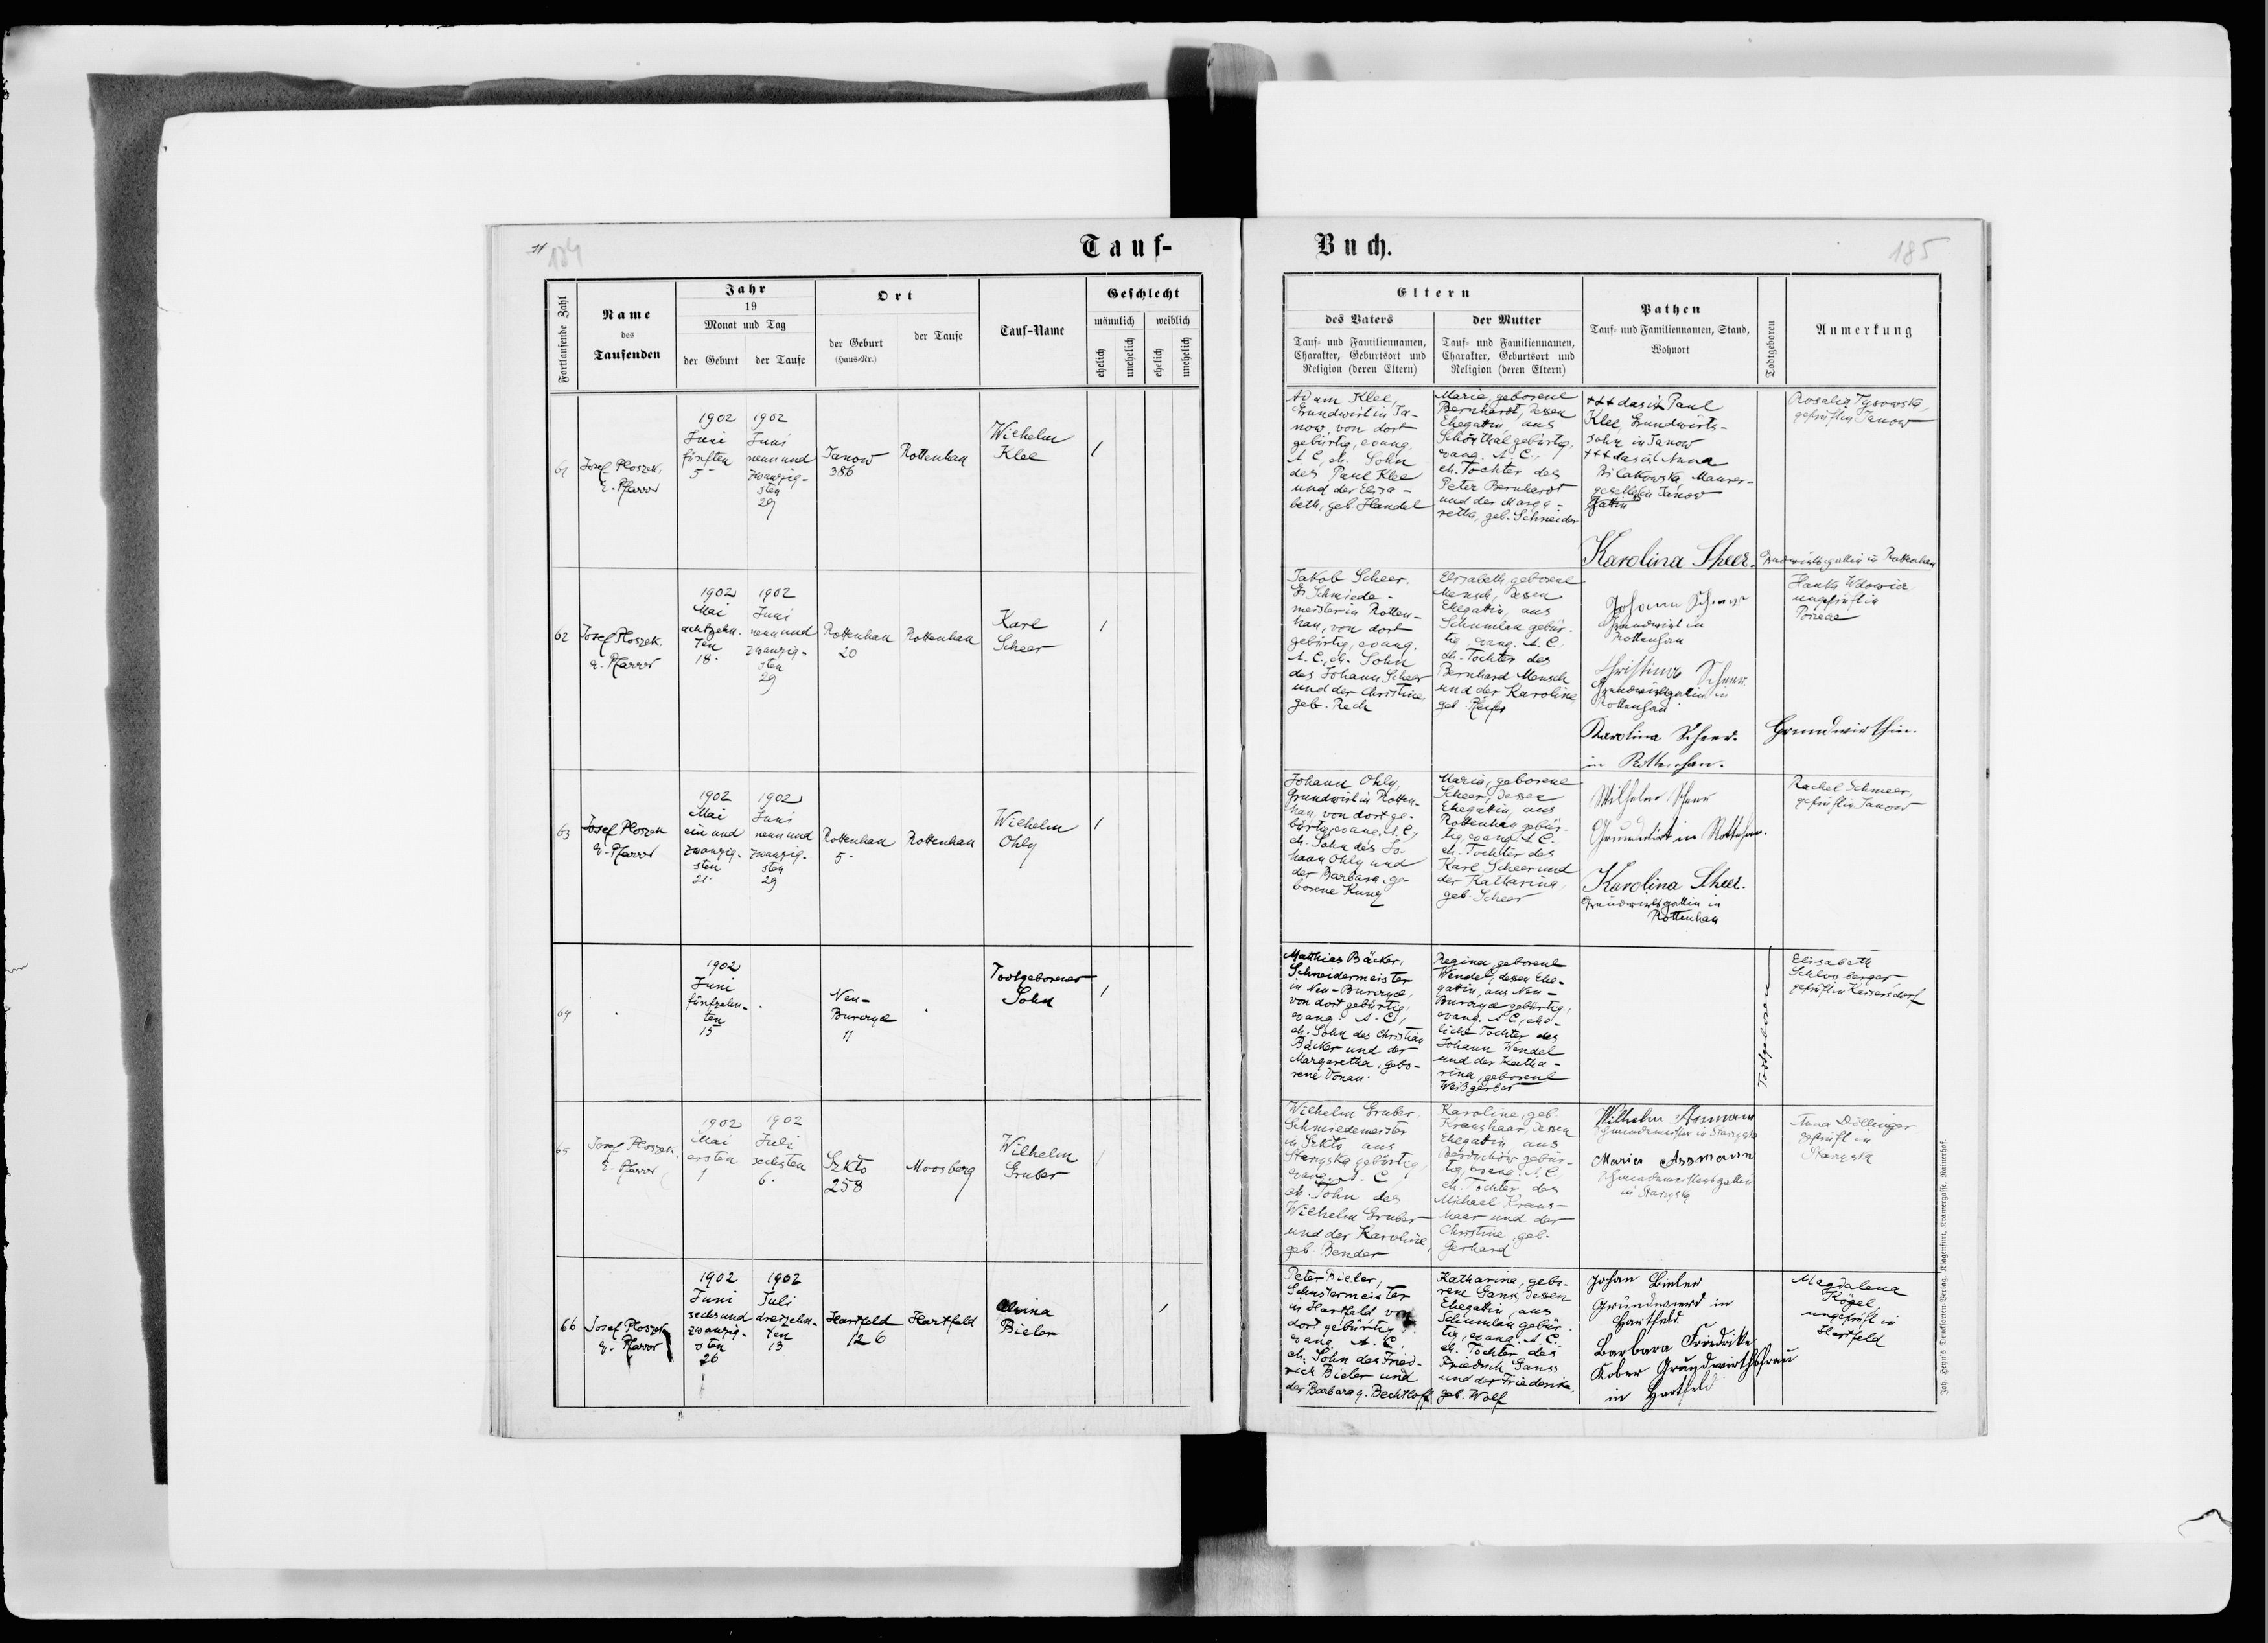 184
Tauf-
Buch.
185
Fortlaufende Zahl
Name
des
Taufenden
Jahr
19
Monat und Tag
der Geburt
der Taufe
Ort
der Geburt
(Haus-Nr.)
der Taufe
Tauf-Name
Geschlecht
männlich
weiblich
ehelich
unehelich
ehelich
unehelich
Eltern
des Vaters
Tauf- und Familiennamen,
Charakter, Geburtsort und
Religion (deren Eltern)
der Mutter
Tauf- und Familiennamen,
Charakter, Geburtsort und
Religion (deren Eltern)
Pathen
Tauf- und Familiennamen, Stand,
Wohnort
Todtgeboren
Anmerkung
61
Josef Ploszek,
E. Pfarrer
1902
Juni
fünften
5
1902
Juni
neunund
zwanzig-
sten
29
Janow
386
Rottenhan
Wilhelm
Klee
Adam Klee,
Grundwirt in Ja-
now, von dort
gebürtig, evang.
A. C., eh. Sohn
des Paul Klee
und der Elisa-
beth, geb. Handel
Marie, geborene
Bernhardt, dessen
Ehegattin, aus
Schönthal gebürtig,
evang. A. C.,
eh. Tochter des
Peter Bernhardt
und der Marga-
retha, geb. Schneider
+++ das ist Paul
Klee, Grundwirts-
sohn in Janow
+++ das ist Anna
Bilakowska, Maurer-
gesellen
Gattin in Janow
Karolina Scheer.
Grundwirtsgattin in Rottenhan
Rosalia Tysowska,
geprüft in Janow
62
Josef Ploszek,
E. Pfarrer
1902
Mai
achtzehn-
ten
18.
1902
Juni
neunund
zwanzig-
sten
29
Rottenhan
20
Rottenhan
Karl
Scheer
Jakob Scheer,
Schmiede-
meister in Rotten-
han, von dort
gebürtig, evang.
A. C., eh. Sohn
des Johann Scheer
und der Christine
geb. Rech
Elisabeth, geborene
Mensch, dessen
Ehegattin, aus
Schumlau gebür-
tig, evang. A. C.
eh. Tochter des
Bernhard Mensch
und der Karoline,
geb.
Johann Scheer
Grundwirt in
Rottenhan
Christina Scheer
Grundwirtsgattin in
Rottenhan
Karolina Scheer. Grundwirthin.
in Rottenhan.
Hanka Wdowia
ungeprüft in
63
Josef Ploszek
E. Pfarrer
1902
Mai
ein und
zwanzig-
sten
21.
1902
Juni
neunund
zwanzig-
sten
29
Rottenhan
5.
Rottenhan
Wilhelm
Ohly
Johann Ohly,
Grundwirt in Rotten-
han, von dort ge-
bürtig, evang. A. C.,
eh. Sohn des Jo-
hann Ohly und
der Barbara, ge-
borene Kunz
Maria, geborene
Scheer, dessen
Ehegattin, aus
Rottenhan gebür-
tig, evang. A. C.
eh. Tochter des
Karl Scheer und
der Katharina,
geb. Scheer
Wilhelm Scheer
Grundwirt in Rottenhan.
Karolina Scheer.
Grundwirtsgattin in
Rottenhan
Rachel Schmeer,
geprüft in Janow
64
1902
Juni
fünfzehn-
ten
15
Neu-
Burczyce
11
Todtgeborener
Sohn
Matthias Bäcker,
Schneidermeister
in Neu-Burczyce,
von dort gebürtig,
evang. A. C.,
eh. Sohn des Christian
Bäcker und der
Margaretha, gebo-
rene Donau.
Regina, geborene
Wendel, dessen Ehe-
gattin, aus Neu-
Burczyce gebürtig,
evang. A. C., ehe-
liche Tochter des
Johann Wendel
und der Katha-
rina, geborene
Weißgerber
Todtgeboren
Elisabeth
Schlossberger
geprüft in Kaisersdorf
65
Josef Ploszek,
E. Pfarrer
1902
Mai
ersten
1
1902
Juli
sechsten
6.
Szkto
258
Moosberg
Wilhelm
Gruber
Wilhelm Gruber,
Schmiedemeister
in Szkto aus
Starzyska gebürtig,
evang. A. C.,
eh. Sohn des
Wilhelm Gruber
und der Karoline,
geb. Bender
Karoline, geb.
Kraushaar, dessen
Ehegattin aus
gebür-
tig, evang. A. C.
eh. Tochter des
Michael Kraus-
haar und der
Christine, geb.
Gerhard
Wilhelm Assmann
Schmiedemeister in Starzyska
Maria Assmann
Schmiedemeistersgattin
in Starzyska
Anna Döllinger
geprüft in
Starzyska
66
Josef Ploszek
E. Pfarrer
1902
Juni
sechsund
zwanzig-
sten
26
1902
Juli
dreizehn-
ten
13
Hartfeld
126
Hartfeld
Alvina
Bieler
Peter Bieler,
Schustermeister
in Hartfeld von
dort gebürtig,
evang. A. C.
eh. Sohn des Fried-
rich Bieler und
der Barbara g. Bechtloff
Katharina, gebo-
rene Ganss, dessen
Ehegattin, aus
Schumlau gebür-
tig, evang. A. C.
eh. Tochter des
Friedrich Ganss
und der Friederike,
geb. Wolf
Johan Bieler
Grundwierd in
Hartfeld
Barbara Friedrike
Kober Grundwirthsfrau
in Hartfeld
Magdalena
Kögel,
ungeprüft in
Hartfeld
Joh. Heyn's Drucksorten-Verlag, Klagenfurt, Kramergasse, Rainerhof.